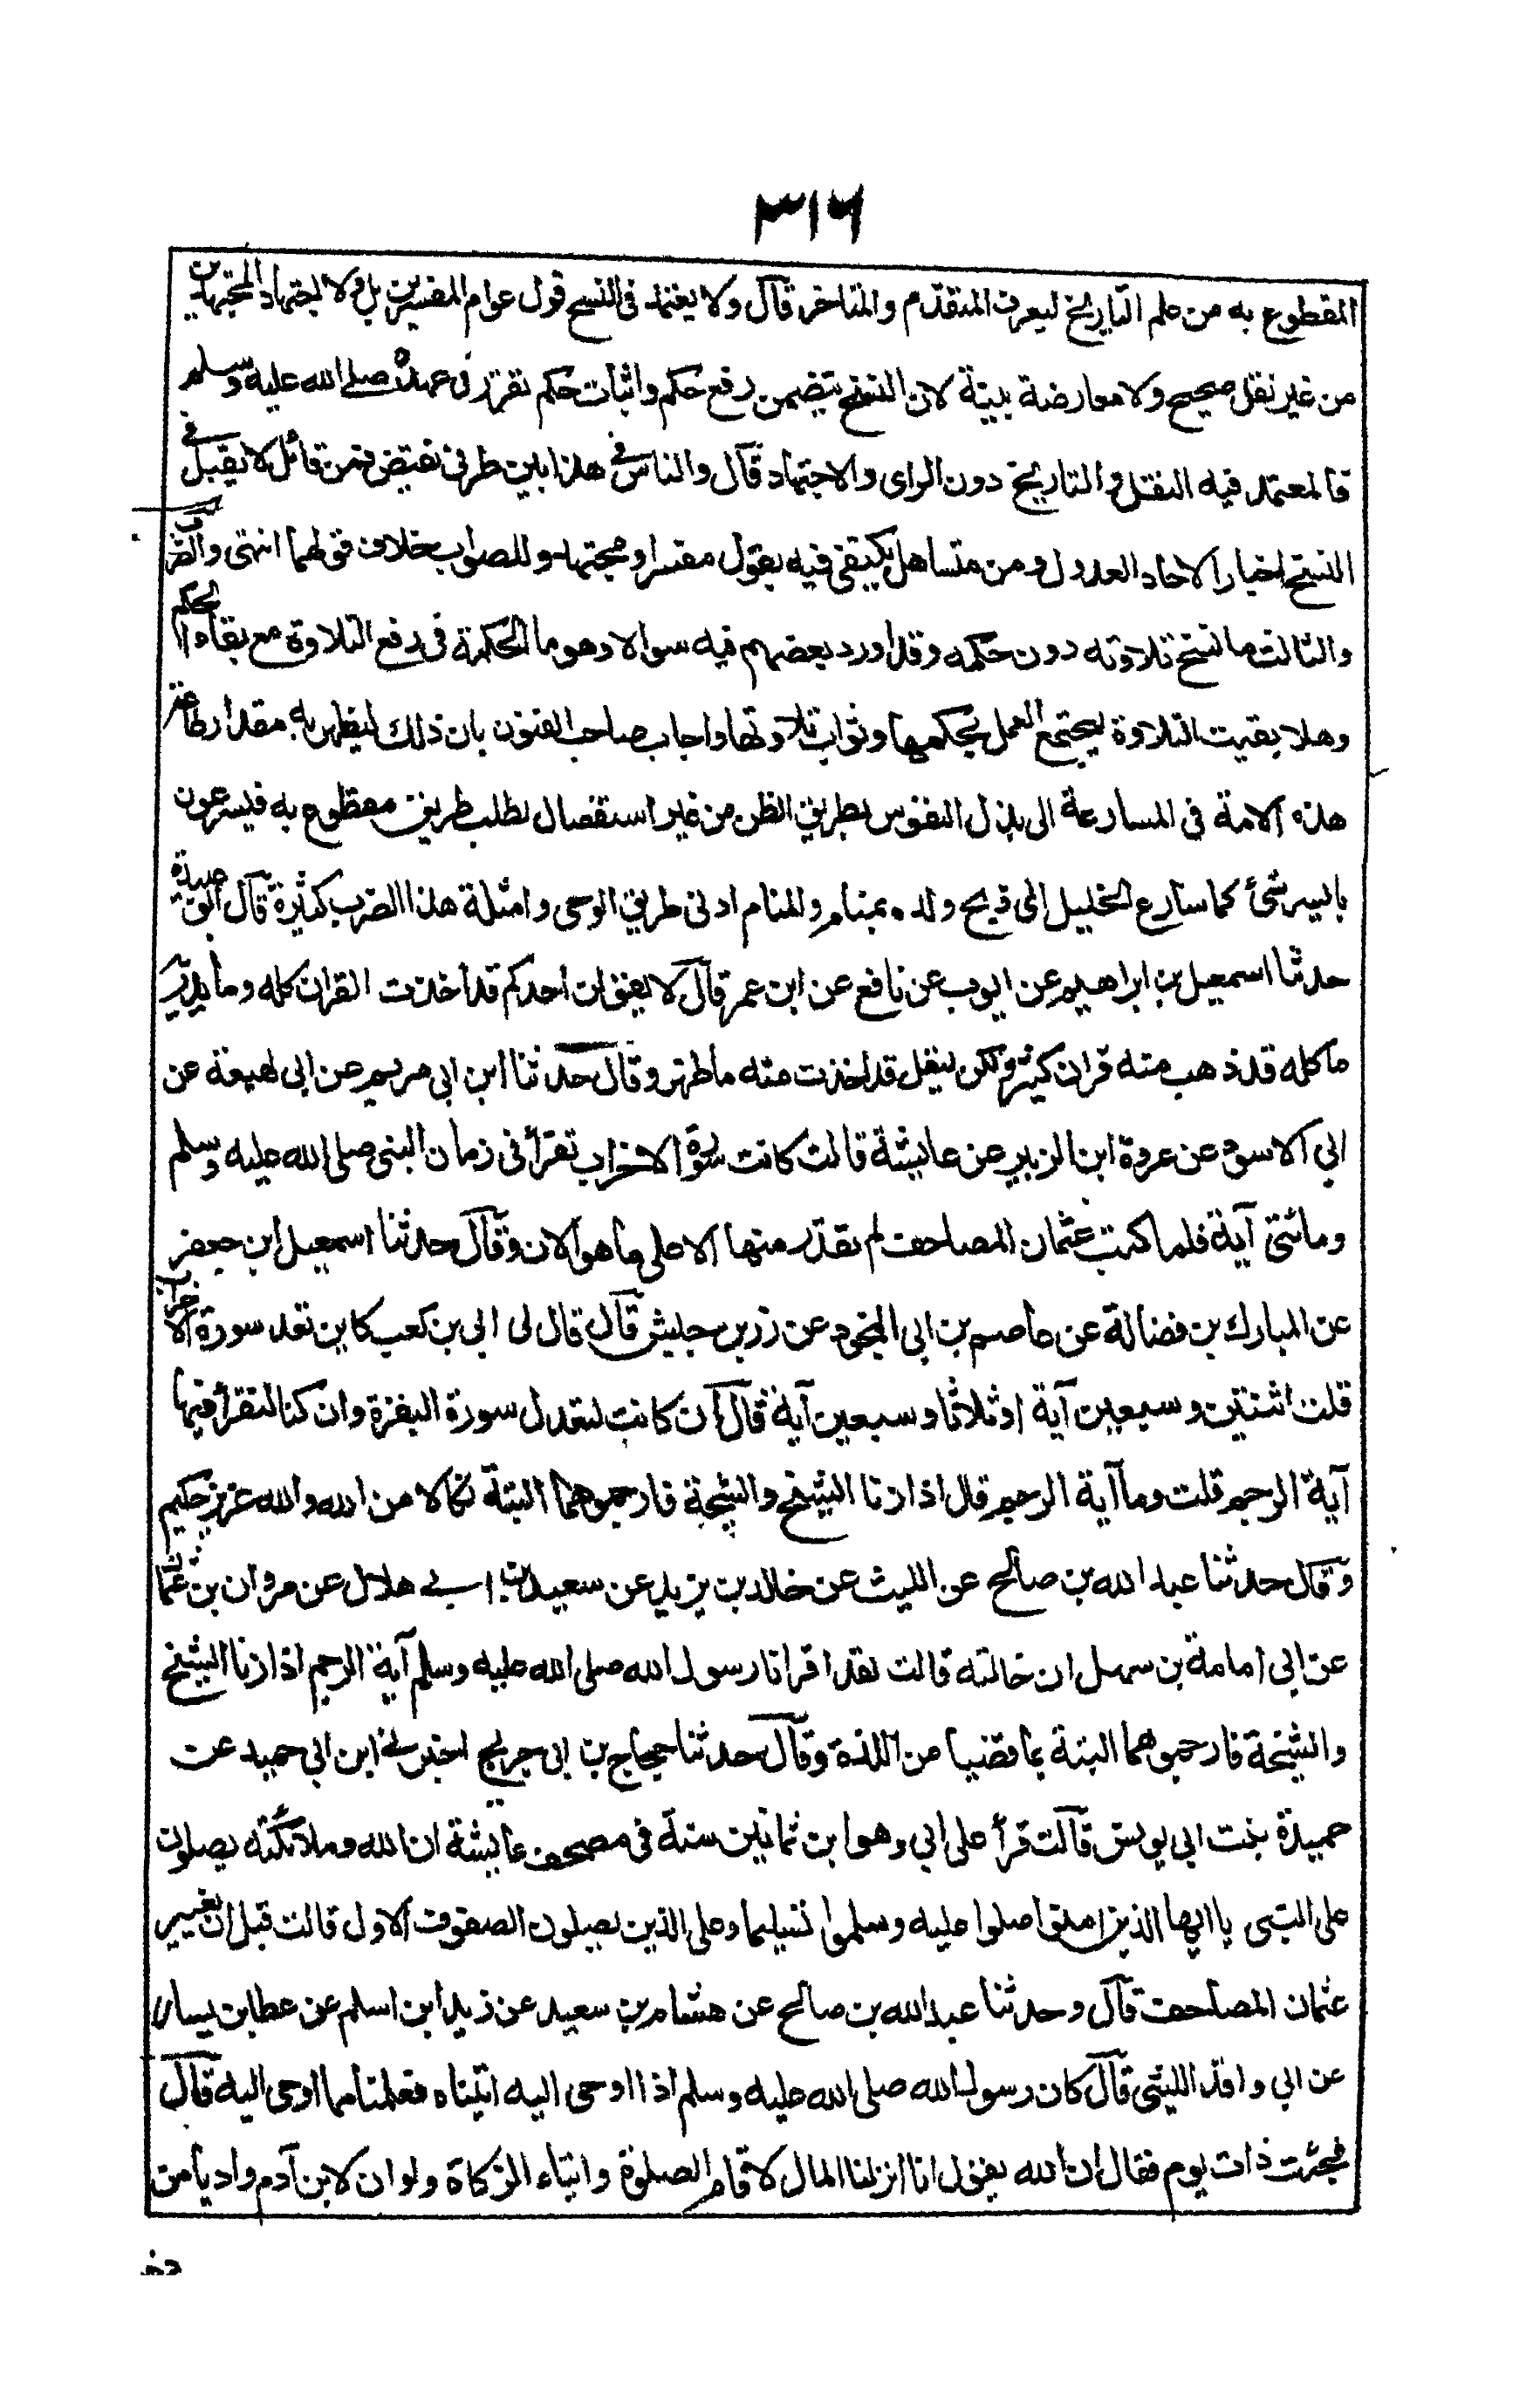 ٣١٦
المقطوع به من علم التاريخ ليعرف المتقدم والمتاخر قال ولا يعتمد فى النسخ قول عوام المفسرين بل ولا اجتهاد المجتهدين
من غير نقل صحيح ولا معارضة بينة لان النسخ يتضمن رفع حكم واثبات حكم تقرر فى عهده صلى الله عليه وسلم
فالمعتمد فيه النقل والتاريخ دون الراى والاجتهاد قال والناس فى هذا بين طرفى نقيض فمن قائل لا يقبل فى
النسخ اخبار الاحاد العدول ومن متساهل يكتفى فيه بقول مفسر او مجتهد والصواب خلاف قولهما انتهى والضرب
والثالث ما نسخ تلاوته دون حكمه وقد اورد بعضهم فيه سوالا وهو ما الحكمة فى رفع التلاوة مع بقاء الحكم
وهلا بقيت التلاوة ليجتمع العمل بحكمها وثواب تلاوتها واجاب صاحب الفنون بان ذلك ليظهر به مقدار طاعة
هذه الامة فى المسارعة الى بذل النفوس بطريق الظن من غير استفصال لطلب طريق مقطوع به فيسرعون
بايسر شئ كما سارع الخليل الى ذبح ولده بمنام والمنام ادنى طريق الوحى وامثلة هذا الضرب كثيرة قال ابو عبيدة
حدثنا اسمعيل بن ابراهيم عن ايوب عن نافع عن ابن عمر قال لا يقولن احدكم قد اخذت القران كله وما يدريه
ما كله قد ذهب منه قران كثير ولكن ليقل قد اخذت منه ما ظهر وقال حدثنا ابن ابى مريم عن ابى لهيعة عن
ابي الاسود عن عروة ابن الزبير عن عايشة قالت كانت سورة الاحزاب تقرأ فى زمان النبى صلى الله عليه وسلم
ومائتى آية فلما كتب عثمان المصاحف لم نقدر منها الا على ما هو الان وقال حدثنا اسمعيل ابن جعفر
عن المبارك بن فضالة عن عاصم بن ابى النجود عن زر بن حبيش قال قال لى ابى بن كعب كاين تعد سورة الاحزاب
قلت اثنتين وسبعين آية او ثلاثا وسبعين آية قال ان كانت لتعدل سورة البقرة وان كنا لنقرأ فيها
آية الرجم قلت وما آية الرجم قال اذا زنا الشيخ والشيخة فارجموهما البتة نكالا من الله والله عزيز حكيم
وقال حدثنا عبد الله بن صالح عن الليث عن خالد بن يزيد عن سعيد بن ابى هلال عن مروان بن عثمان
عن ابى امامة بن سهل ان خالته قالت لقد اقرانا رسول الله صلى الله عليه وسلم آية الرجم اذا زنا الشيخ
والشيخة فارجموهما البتة بما قضيا من اللذة وقال حدثنا حجاج بن ابى جريج اخبرنى ابن ابى حميد عن
حميدة بنت ابى يونس قالت قرأ على ابى وهو ابن ثمانين سنة فى مصحف عايشة ان الله وملائكته يصلون
على النبى يا ايها الذين امنوا صلوا عليه وسلموا تسليما وعلى الذين يصلون الصفوف الاول قالت قبل ان يغيير
عثمان المصاحف قال وحدثنا عبد الله بن صالح عن هشام بن سعيد عن زيد ابن اسلم عن عطا بن يسار
عن ابى واقد الليثى قال كان رسول الله صلى الله عليه وسلم اذا اوحى اليه اتيناه فعلمنا مما اوحى اليه قال
فجئت ذات يوم فقال ان الله يقول انا انزلنا المال لاقام الصلوة وايتاء الزكاة ولو ان لابن آدم واديا من